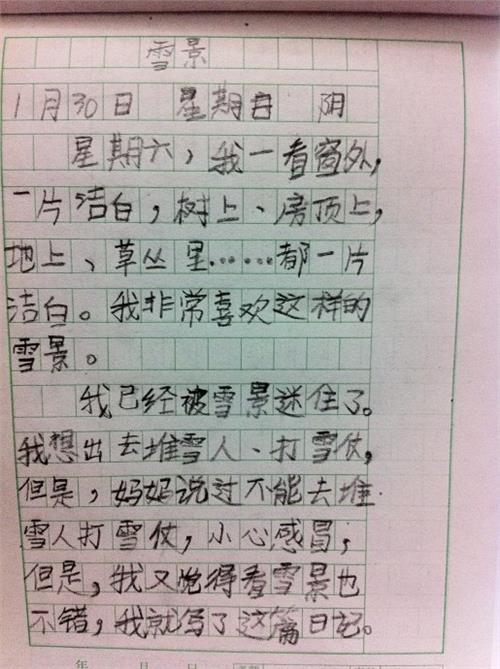 雪景
1月30日 星期日 阴
星期六，我一看窗外，
一片洁白，树上、房顶上，
地上、草丛里……都一片
洁白。我非常喜欢这样的
雪景。
我已经被雪景迷住了。
我想出去堆雪人、打雪仗，
但是，妈妈说过不能去堆
雪人打雪仗，小心感冒，
但是，我又觉得看雪景也
不错，我就写了这篇日记。
年 月 日